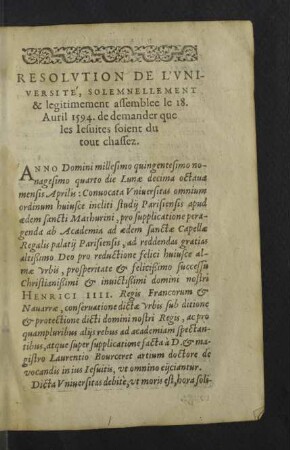 RESOLVTION DE L'VNI-
VERSITE', SOLEMNELLEMENT
& legitimement assemblee le 18.
Auril 1594. de demander que
les Iesuites soient du
tout chassez.
ANNO Domini millesimo quingentesimo no-
nagesimo quarto die Lunæ decima octaua
mensis Aprilis: Conuocata Vniuersitas omnium
ordinum huiusce incliti studij Parisiensis apud
ædem sancti Mathurini, pro supplicatione pera-
genda ab Academia ad ædem sanctæ Capellæ
Regalis palatij Parisiensis, ad reddendas gratias
altissimo Deo pro reductione felici huiusce al-
mæ vrbis, prosperitate & felicissimo successu
Christianissimi & inuictissimi domini nostri
HENRICI IIII. Regis Francorum &
Nauarræ, conseruatione dictæ vrbis sub ditione
& protectione dicti domini nostri Regis, ac pro
quampluribus alijs rebus ad academiam spectan-
tibus, atque super supplicatione facta à D. & ma-
gistro Laurentio Bourceret artium doctore de
vocandis in ius Iesuitis, vt omnino eijciantur.
Dicta Vniuersitas debitè, vt moris est, hora soli-